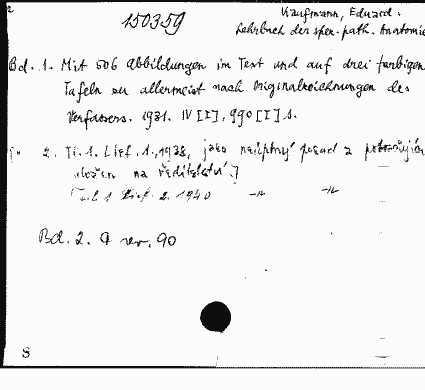 2
150359
Kaufmann, Eduard.
Lehrbuch der spez. path. Anatomie
Bd. 1. Mit 506 Abbildungen im Text und auf drei farbigen
Tafeln zu allermeist nach Originalzeichnungen des
Verfassers. 1931. IV [I], 990 [I] s.
2. Tl. 1. Lief. 1., 1938, jako neúplný
uložen na ředitelství.]
Teil 1 Lief. 2. 1940 -"- -"-
Bd. 2. 9 rev. 90
S